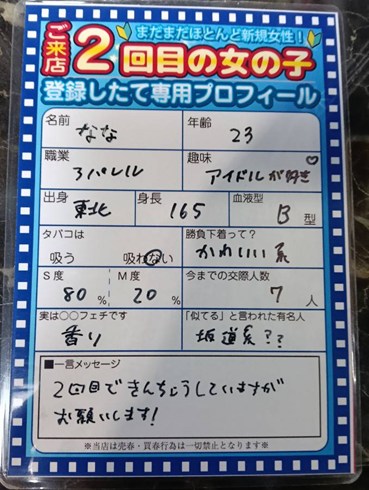 まだまだほとんど新規女性！
ご来店 2回目の女の子
登録したて専用プロフィール
名前 なな 年齢 23
職業 アパレル 趣味 アイドルが好き♡
出身 東北 身長 165 血液型 B型
タバコは 吸う 吸わない
勝負下着って？ かわいい系
S度 80% M度 20% 今までの交際人数 7人
実は○○フェチです 香り
「似てる」と言われた有名人 坂道系??
■一言メッセージ
2回目できんちょうしていますが
お願いします!
※当店は売春・買春行為は一切禁止となります※